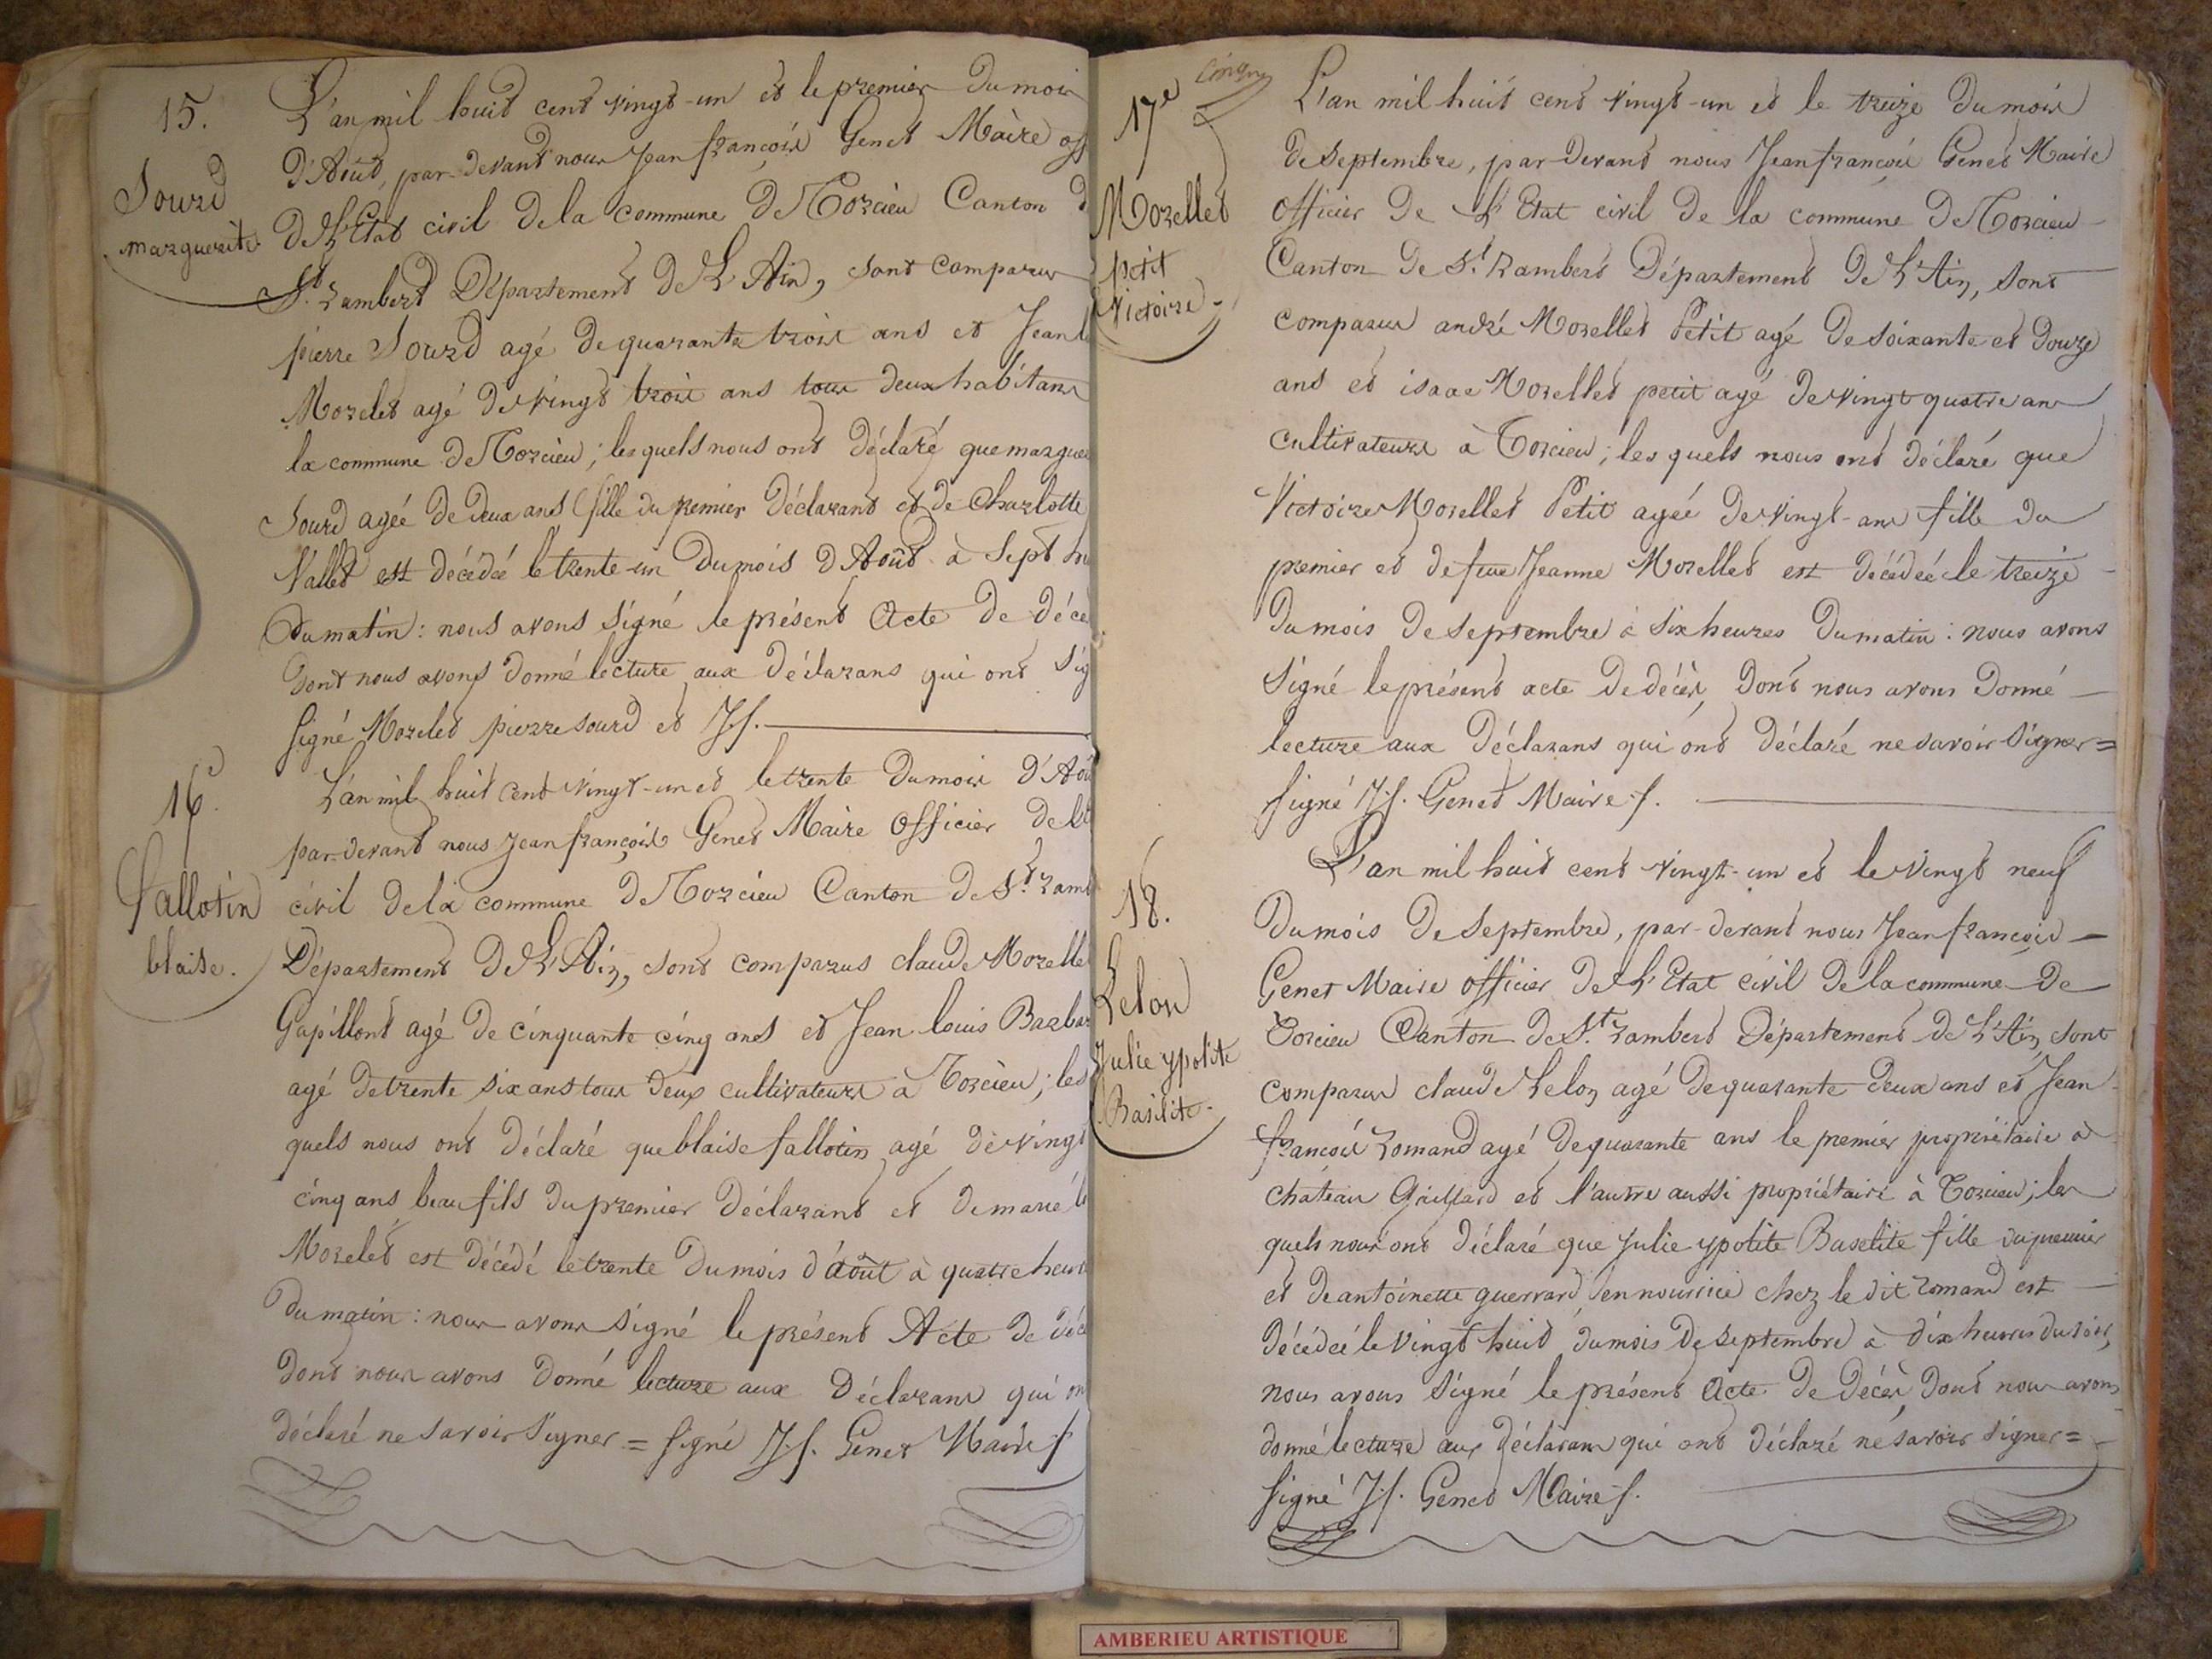 15.
Sourd
marguerite
L'an mil huit cent vingt-un et le premier du mois
D'Août, par-devant nous Jean françois Genet Maire off
De L'Etat civil De la commune De Torcieu Canton d
St. rambert Département De L'Ain, sont comparus
pierre Sourd agé de quarante trois ans et Jean l
Morelet agé De vingt trois ans tous deux habitans
la commune De Torcieu ; les quels nous ont déclaré que margue
Sourd agée De deux ans fille du premier Déclarant et de Charlotte
Vallet est décédée le trente-un Du mois D'Août à Sept he
Du matin : nous avons signé le présent Acte De déce
dont nous avons donné lecture aux déclarans qui ont sig
signé Morelet pierre sourd et J.f.
16.
fallotin
blaise.
L'an mil huit cent vingt-un et le trente Du mois d'Aou
par-devant nous Jean françois Genet Maire Officier De l'Et
civil De la commune De Torcieu Canton De St. ramb
Département De L'Ain, sont comparus claude Morelle
Gapillont agé De cinquante cinq ans et Jean louis Barba
agé De trente six ans tous Deux cultivateurs à Torcieu ; les
quels nous ont déclaré que blaise fallotin agé De vingt
cinq ans beau fils Du premier Déclarant et De marie
Morelet est décédé le trente Du mois d'août à quatre heur
Du matin : nous avons signé le présent Acte De déc
Dont nous avons Donné lecture aux Déclarans qui on
déclaré ne savoir signer = signé J.f. Genet Maire f
17e
Morellet
petit
Victoire
L'an mil huit cent vingt-un et le treize Du mois
De Septembre, par-Devant nous Jean françois Genet Maire
Officier De L'Etat civil De la commune De Torcieu
Canton De St. Rambert Département De L'Ain, sont
comparus andré Morellet Petit agé De soixante et Douze
ans et isaac Morellet petit agé De vingt quatre ans
cultivateurs à Torcieu ; les quels nous ont déclaré que
Victoire Morellet Petit agée De vingt-ans fille Du
premier et De feue Jeanne Morellet est décédée le treize
Du mois De Septembre à six heures Du matin : nous avons
Signé le présent acte De décès, Dont nous avons Donné
lecture aux Déclarans qui ont déclaré ne savoir signer =
signé J.f. Genet Maire f.
18.
Lelon
Julie ypolite
Basilite
L'an mil huit cent vingt-un et le vingt neuf
Du mois De Septembre, par-devant nous Jean françois
Genet Maire officier De L'Etat civil De la commune De
Torcieu Canton De St. rambert Département De L'Ain sont
comparus claude Lelon agé De quarante Deux ans et Jean
françois romand agé De quarante ans le premier propriétaire à
chateau Gaillard et l'autre aussi propriétaire à Torcieu ; les
quels nous ont déclaré que Julie ypolite Baselite fille du premier
et De antoinette guerrard en nourrice chez le dit romand est
décédée le vingt huit Du mois De Septembre à dix heures Du soir,
nous avons signé le présent Acte De Décès, dont nous avons
donné lecture aux déclarans qui ont déclaré ne savoir signer =
signé J.f. Genet Maire f.
AMBERIEU ARTISTIQUE